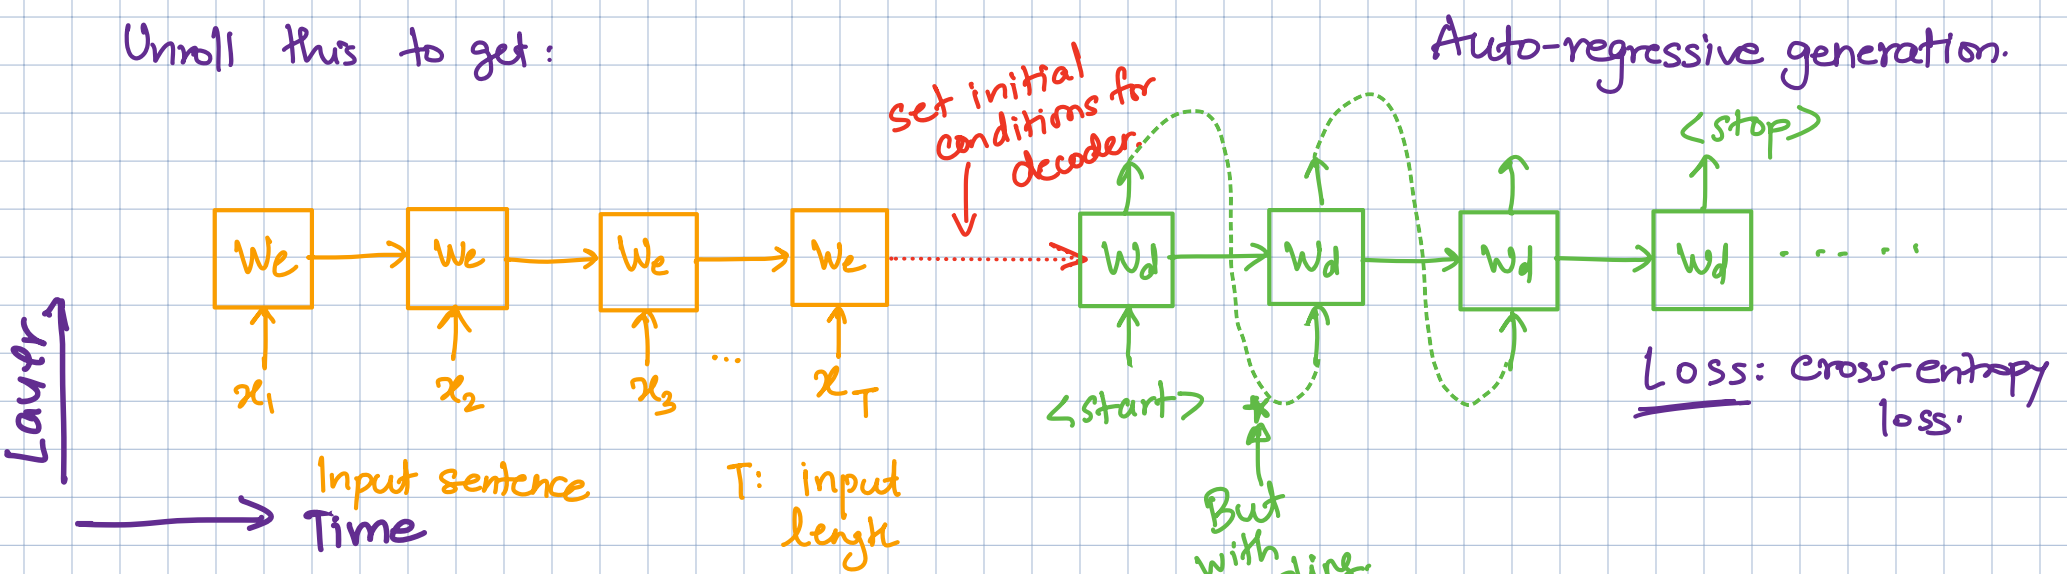 Unroll this to get:
Auto-regressive generation.
set initial
conditions for
decoder.
<stop>
We We We We Wd Wd Wd Wd
x1 x2 x3 ... xT
<start>
*
Loss: cross-entropy
loss.
Layer
Input sentence
T: input
lengt
Time
But
with